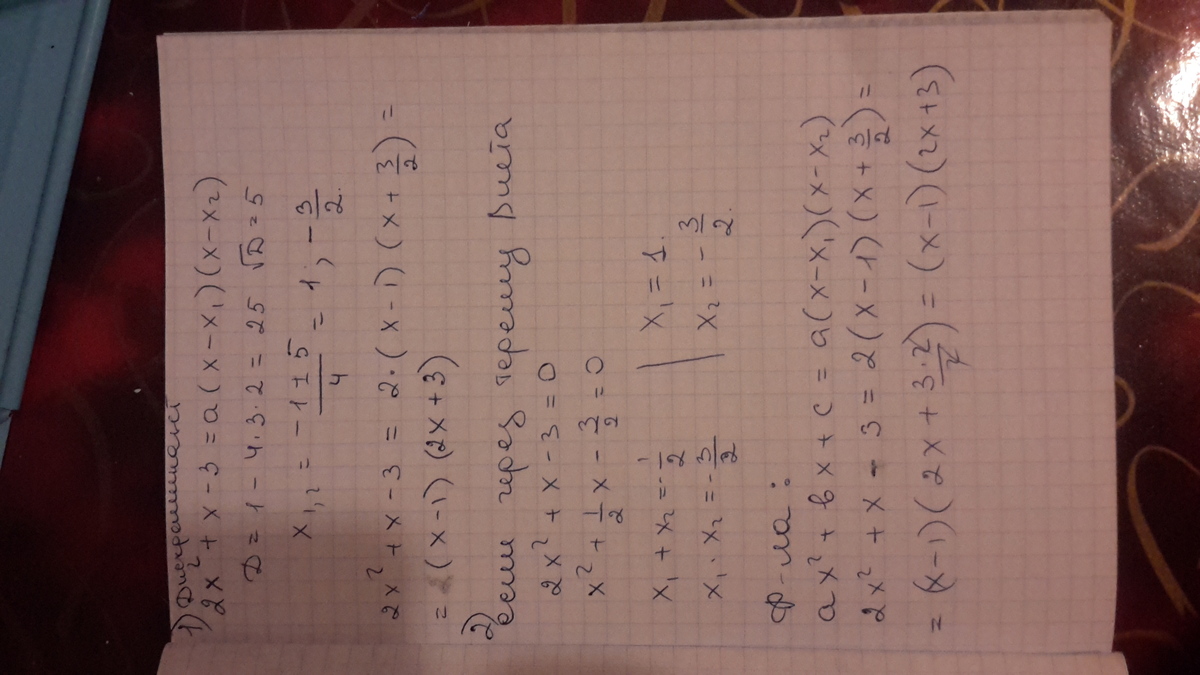 1) Дискриминант
2x² + x - 3 = a(x - x₁)(x - x₂)
D = 1 - 4·3·2 = 25 √D = 5
x₁,₂ = (-1 ± 5)/4 = 1; -3/2.
2x² + x - 3 = 2·(x - 1)(x + 3/2) =
= (x - 1)(2x + 3)
2) если через терему Виета
2x² + x - 3 = 0
x² + 1/2 x - 3/2 = 0
x₁ + x₂ = -1/2 | x₁ = 1.
x₁ · x₂ = -3/2 | x₂ = -3/2.
ф-ла:
ax² + bx + c = a(x - x₁)(x - x₂)
2x² + x - 3 = 2(x - 1)(x + 3/2) =
= (x - 1)(2x + 3·2/2) = (x - 1)(2x + 3)